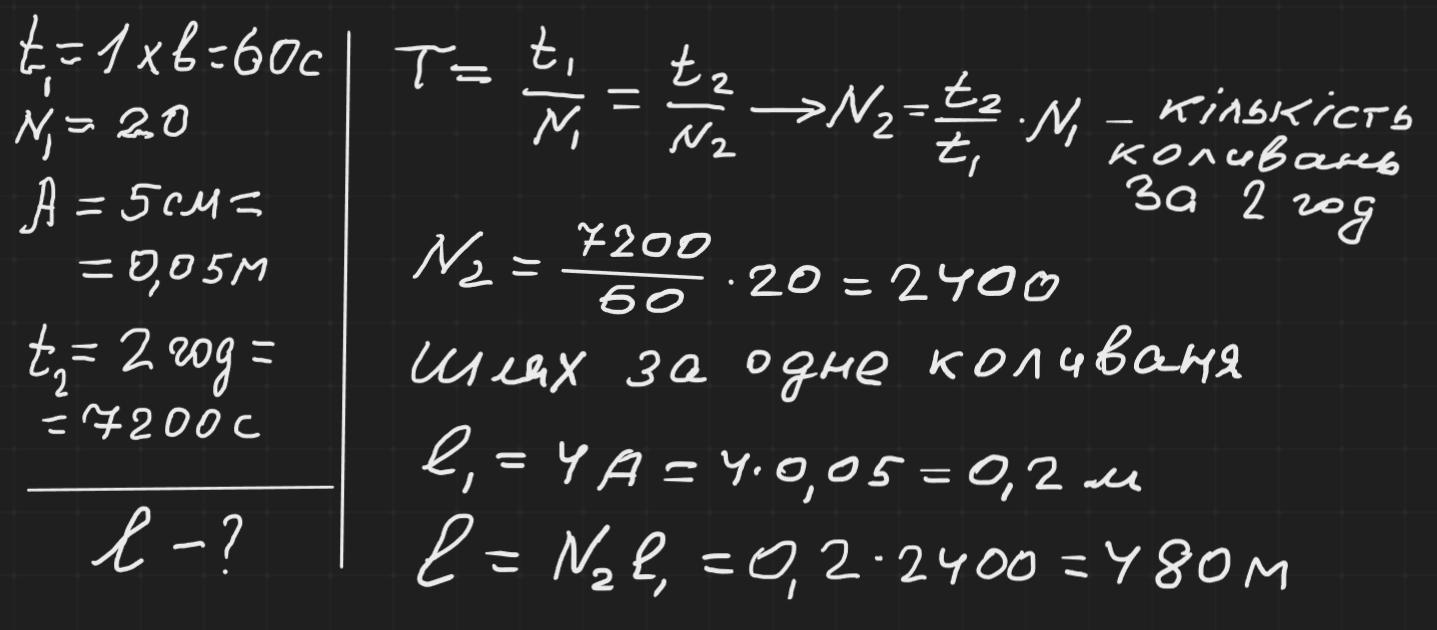 t₁ = 1 хв = 60с
N₁ = 20
A = 5 см =
= 0,05м
t₂ = 2 год =
= 7200с
l - ?
T = t₁/N₁ = t₂/N₂ → N₂ = t₂/t₁ · N₁ – кількість
коливань
за 2 год
N₂ = 7200/60 · 20 = 2400
шлях за одне коливаня
l₁ = 4A = 4·0,05 = 0,2 м
l = N₂l₁ = 0,2·2400 = 480м